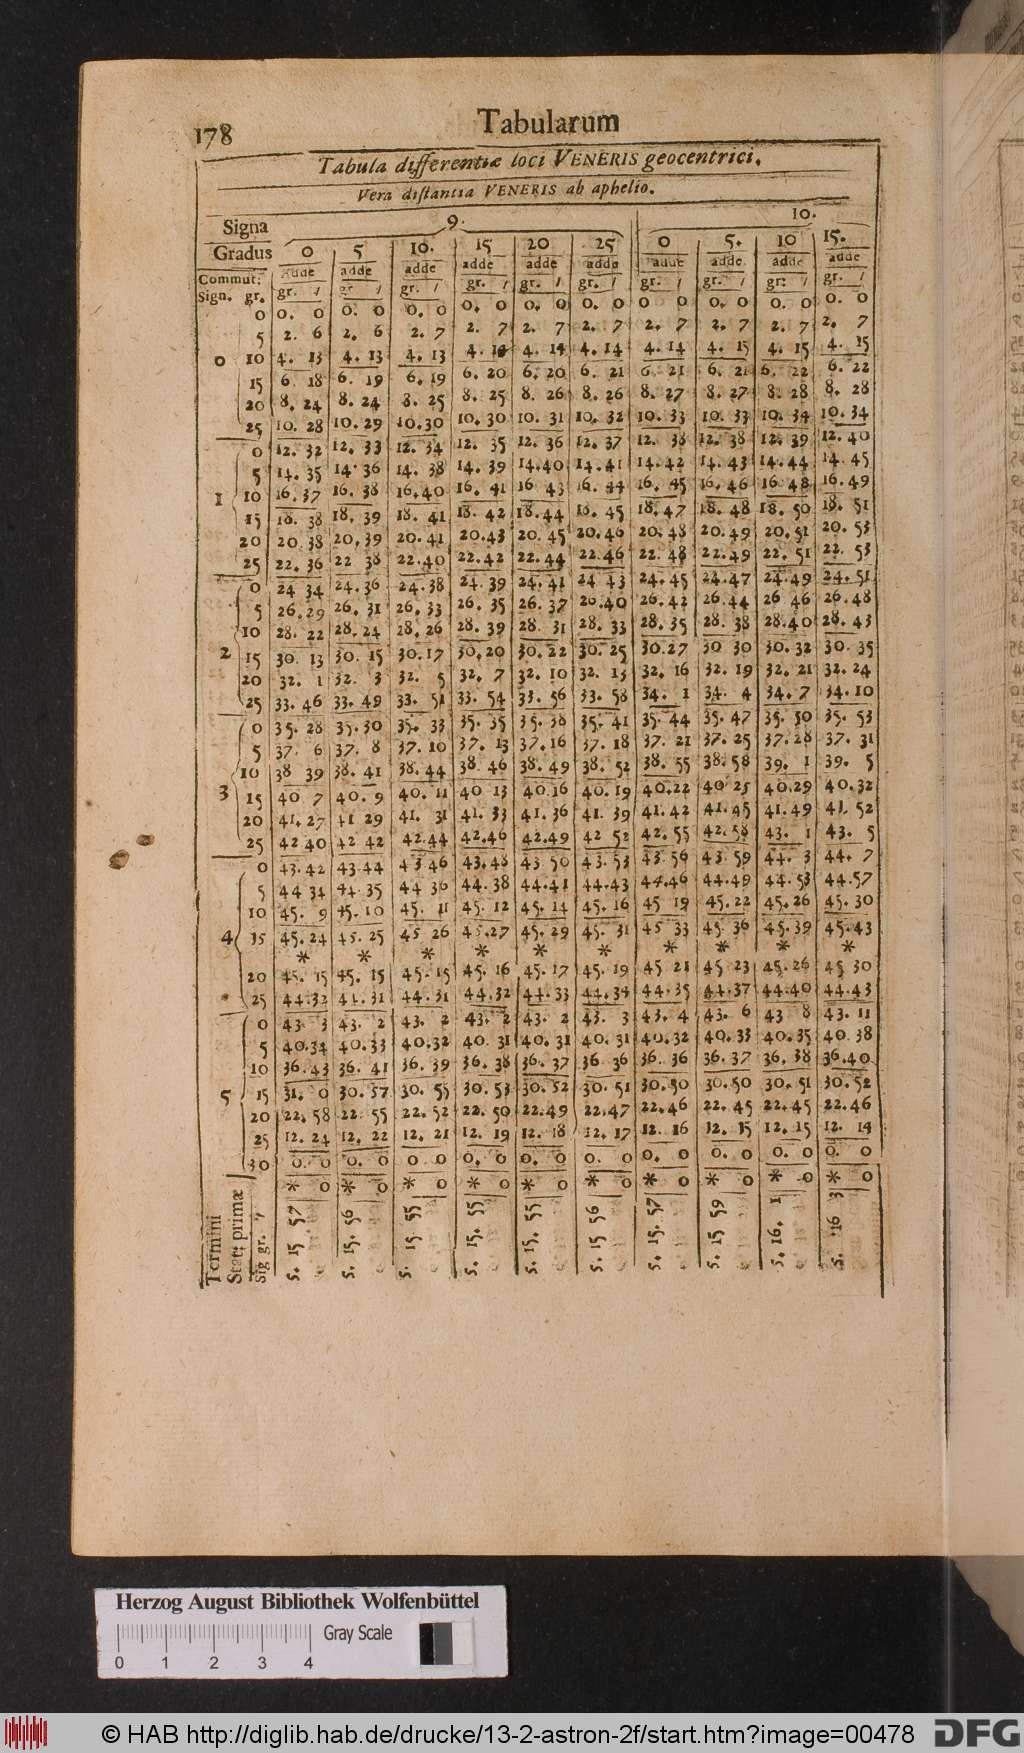 178 Tabularum
Tabula differentiæ loci VENERIS geocentrici.
Vera distantia VENERIS ab aphelio.
Signa 9. 10.
Gradus 0 5 10. 15 20 25 0 5. 10 15.
Commut: adde adde adde adde adde adde adde adde adde adde
Sign. gr. gr. / gr / gr. / gr. / gr. / gr. / gr. / gr. / gr: / gr. /
0 0. 0 0. 0 0. 0 0. 0 0. 0 0. 0 0 0 0. 0 0. 0 0. 0
5 2. 6 2. 6 2. 7 2. 7 2. 7 2. 7 2. 7 2. 7 2. 7 2. 7
0 10 4. 13 4. 13 4. 13 4. 14 4. 14 4. 14 4. 14 4. 15 4. 15 4. 15
15 6. 18 6. 19 6. 19 6. 20 6. 20 6. 21 6. 21 6. 21 6. 22 6. 22
20 8. 24 8. 24 8. 25 8. 25 8. 26 8. 26 8. 27 8. 27 8. 28 8. 28
25 10. 28 10. 29 10. 30 10. 30 10. 31 10. 32 10. 33 10. 33 10. 34 10. 34
0 12. 32 12. 33 12. 34 12. 35 12. 36 12. 37 12. 38 12. 38 12. 39 12. 40
5 14. 35 14. 36 14. 38 14. 39 14. 40 14. 41 14. 42 14. 43 14. 44 14. 45
1 10 16. 37 16. 38 16. 40 16. 41 16 43 16. 44 16. 45 16. 46 16 48 16. 49
15 18. 38 18. 39 18. 41 18. 42 18. 44 18. 45 18. 47 18. 48 18. 50 18. 51
20 20. 38 20. 39 20. 41 20. 43 20. 45 20. 46 20. 48 20. 49 20. 51 20. 53
25 22. 36 22 38 22. 40 22. 42 22. 44 22. 46 22. 48 22. 49 22. 51 22. 53
0 24 34 24. 36 24. 38 24. 39 24. 41 24 43 24. 45 24. 47 24. 49 24. 51
5 26. 29 26. 31 26. 33 26. 35 26. 37 26. 40 26. 42 26. 44 26 46 26. 48
10 28. 22 28. 24 28. 26 28. 39 28. 31 28. 33 28. 35 28. 38 28. 40 28. 43
2 15 30. 13 30. 15 30. 17 30. 20 30. 22 30. 25 30. 27 30 30 30. 32 30. 35
20 32. 1 32. 3 32. 5 32. 7 32. 10 32. 13 32. 16 32. 19 32. 21 32. 24
25 33. 46 33. 49 33. 51 33. 54 33. 56 33. 58 34. 1 34. 4 34. 7 34. 10
0 35. 28 35. 30 35. 33 35. 35 35. 38 35. 41 35. 44 35. 47 35. 50 35. 53
5 37. 6 37. 8 37. 10 37. 13 37. 16 37. 18 37. 21 37. 25 37. 28 37. 31
10 38 39 38. 41 38. 44 38. 46 38. 49 38. 52 38. 55 38. 58 39. 1 39. 5
3 15 40 7 40. 9 40. 11 40 13 40. 16 40. 19 40. 22 40 25 40. 29 40. 32
20 41. 27 41 29 41. 31 41. 33 41. 36 41. 39 41. 42 41. 45 41. 49 41. 52
25 42 40 42 42 42. 44 42. 46 42. 49 42 52 42. 55 42. 58 43. 1 43. 5
0 43. 42 43. 44 43 46 43. 48 43 50 43. 53 43 56 43. 59 44. 3 44. 7
5 44 34 44. 35 44 36 44. 38 44. 41 44. 43 44. 46 44. 49 44. 53 44. 57
10 45. 9 45. 10 45. 11 45. 12 45. 14 45. 16 45 19 45. 22 45. 26 45. 30
4 15 45. 24 45. 25 45 26 45. 27 45. 29 45. 31 45 33 45 36 45. 39 45. 43
* * * * * * * * * *
20 45. 15 45. 15 45. 15 45. 16 45. 17 45. 19 45 21 45 23 45. 26 45 30
25 44. 32 44. 31 44. 31 44. 32 44. 33 44. 34 44. 35 44. 37 44. 40 44. 43
0 43 3 43. 2 43. 2 43. 2 43. 2 43. 3 43. 4 43. 6 43 8 43. 11
5 40. 34 40. 33 40. 32 40. 31 40. 31 40. 31 40. 32 40. 33 40. 35 40 38
10 36. 43 36. 41 36. 39 36. 38 36. 37 36 36 36. 36 36. 37 36. 38 36. 40
5 15 31. 0 30. 57 30. 55 30. 53 30. 52 30. 51 30. 50 30. 50 30. 51 30. 52
20 22. 58 22 55 22. 52 22. 50 22. 49 22. 47 22. 46 22. 45 22. 45 22. 46
25 12. 24 12. 22 12. 21 12. 19 12. 18 12. 17 12. 16 12. 15 12. 15 12. 14
30 0. 0 0. 0 0 0 0. 0 0. 0 0. 0 0. 0 0. 0 0. 0 0. 0
* 0 * 0 * 0 * 0 * 0 * 0 * 0 * 0 * 0 * 0
Termini
Stati primæ
Sig gr. /
5. 15 57
5. 15. 56
5. 15 55
5. 15. 55
5. 15. 55
5. 15 56
5. 15. 57
5. 15 59
5. 16. 1
5. 16 3
Herzog August Bibliothek Wolfenbüttel
Gray Scale
0 1 2 3 4
© HAB http://diglib.hab.de/drucke/13-2-astron-2f/start.htm?image=00478
DFG